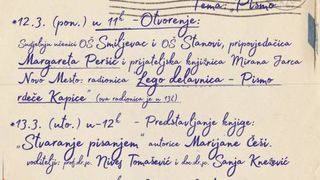 Tema: „Pismo
*12.3. (pon.) u 11h - Otvorenje:
Sudjeluju učenici OŠ Smiljevac i OŠ Stanovi, pripovjedačica
Margareta Peršić i prijateljska knjižnica Mirana Jarca
Novo Mesto: radionica Lego delavnica - Pismo
rdeče Kapice" (ova radionica je u 13h)
*13.3. (uto.) u-12h - Predstavljanje knjige:
„Stvaranje pisanjem" autorice Marijane Češi.
voditelji: prof.dr.sc. Nives Tomašević i doc.dr.sc. Sanja Knežević